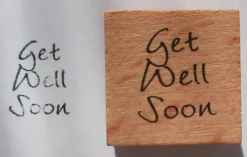 Get
Well
Soon
Get
Well
Soon